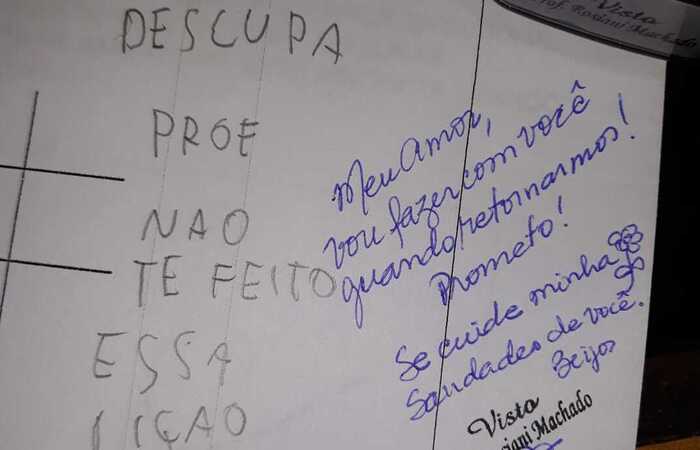 DESCUPA
PROF
NAO
TE FEITO
ESSA
LIÇAO
Meu amor,
vou fazer com você
quando retornarmos!
Prometo!
Se cuide minha
Saudades de você.
Beijos
Visto
Prof. Rosiani Machado
Visto
siani Machado